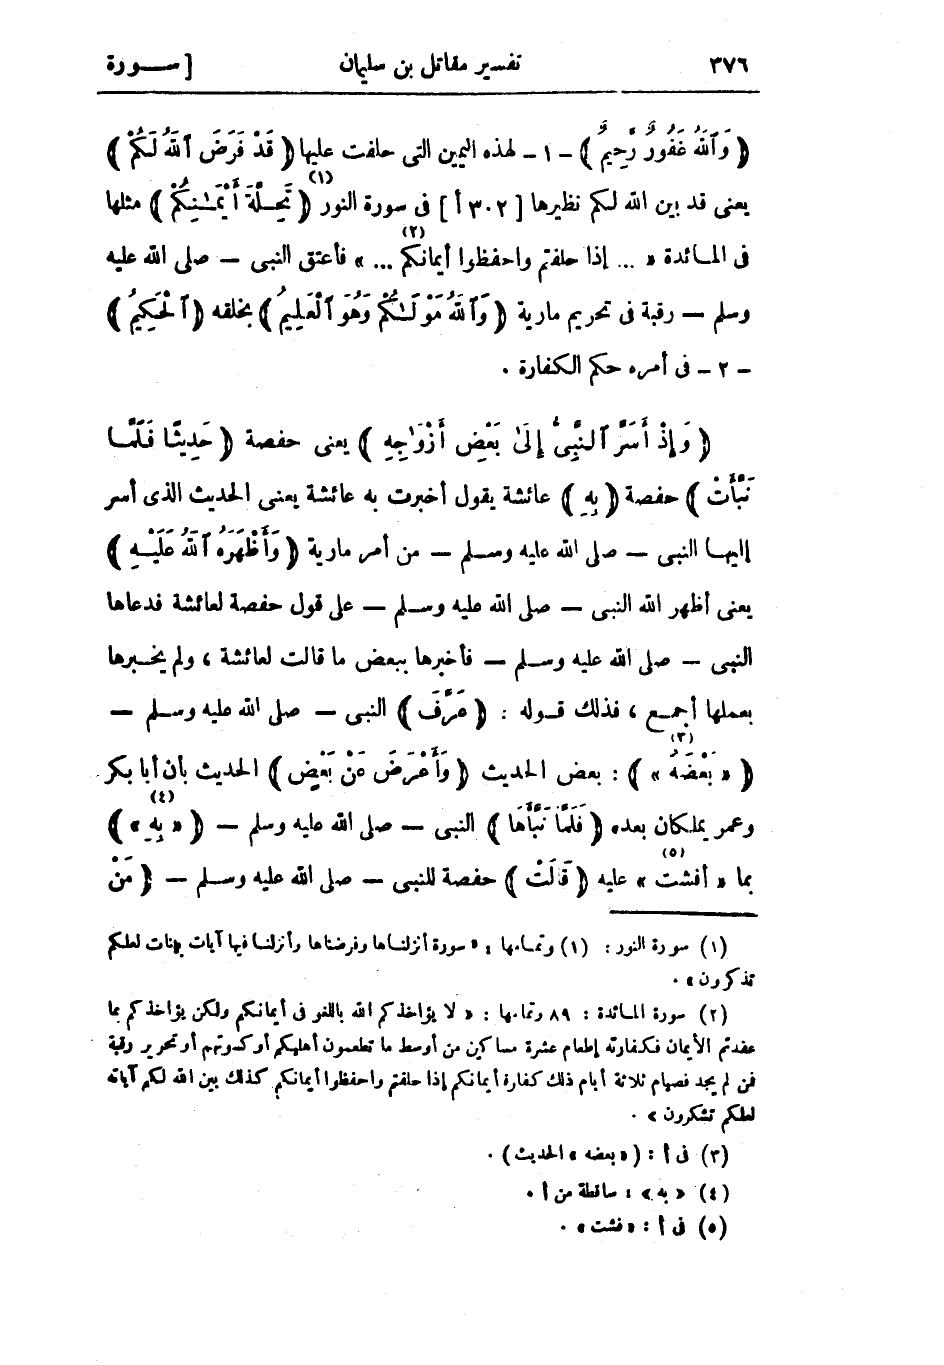 ٣٧٦ تفسير مقاتل بن سليمان [ ســـورة
( وَٱللَّهُ غَفُورٌ رَّحِيمٌ ) - ١ - لهذه اليمين التى حلفت عليها ( قَدْ فَرَضَ ٱللَّهُ لَكُمْ )
يعنى قد بين الله لكم نظيرها [ ٣٠٢ أ ] فى سورة النور (١) ( تَحِلَّةَ أَيْمَـٰنِكُمْ ) مثلها
فى المـائدة « ... إذا حلفتم واحفظوا أيمانكم ... » (٢) فأعتق النبى — صلى الله عليه
وسلم — رقبة فى تحريم مارية ( وَٱللَّهُ مَوْلَـٰكُمْ وَهُوَ ٱلْعَلِيمُ ) بخلقه ( ٱلْحَكِيمُ )
- ٢ - فى أمره حكم الكفارة .
( وَإِذْ أَسَرَّ ٱلنَّبِىُّ إِلَىٰ بَعْضِ أَزْوَٰجِهِ ) يعنى حفصة ( حَدِيثًا فَلَمَّـا
نَبَّأَتْ ) حفصة ( بِهِ ) عائشة يقول أخبرت به عائشة يعنى الحديث الذى أسر
إليهـا النبى — صلى الله عليه وسـلم — من أمر مارية ( وَأَظْهَرَهُ ٱللَّهُ عَلَيْـهِ )
يعنى أظهر الله النبى — صلى الله عليه وسـلم — على قول حفصة لعائشة فدعاها
النبى — صلى الله عليه وسـلم — فأخبرها ببعض ما قالت لعائشة ، ولم يخـبرها
بعملها أجمـع ، فذلك قـوله : ( عَرَّفَ ) النبى — صلى الله عليه وسـلم —
( « بَعْضَهُ » ) (٣) : بعض الحديث ( وَأَعْرَضَ عَنْ بَعْضٍ ) الحديث بأن أبا بكر
وعمر يملكان بعده ( فَلَمَّا نَبَّأَهَا ) النبى — صلى الله عليه وسلم — ( « بِهِ » ) (٤)
بما « أفشت » (٥) عليه ( قَالَتْ ) حفصة للنبى — صلى الله عليه وسلم — ( مَنْ
(١) سورة النور : (١) وتمـامها : « سورة أنزلنـاها وفرضناها وأنزلنـا فيها آيات بينات لعلكم
تذكرون » .
(٢) سورة المـائدة : ٨٩ وتمامها : « لا يؤاخذكم الله باللغو فى أيمانكم ولكن يؤاخذكم بما
عقدتم الأيمان فكفارته إطعام عشرة مساكين من أوسط ما تطعمون أهليكم أو كسوتهم أو تحرير رقبة
فمن لم يجد فصيام ثلاثة أيام ذلك كفارة أيمانكم إذا حلفتم واحفظوا أيمانكم كذلك يبين الله لكم آياته
لعلكم تشكرون » .
(٣) فى أ : ( « بعضه » الحديث ) .
(٤) « به » : ساقطة من أ .
(٥) فى أ : « فشت » .